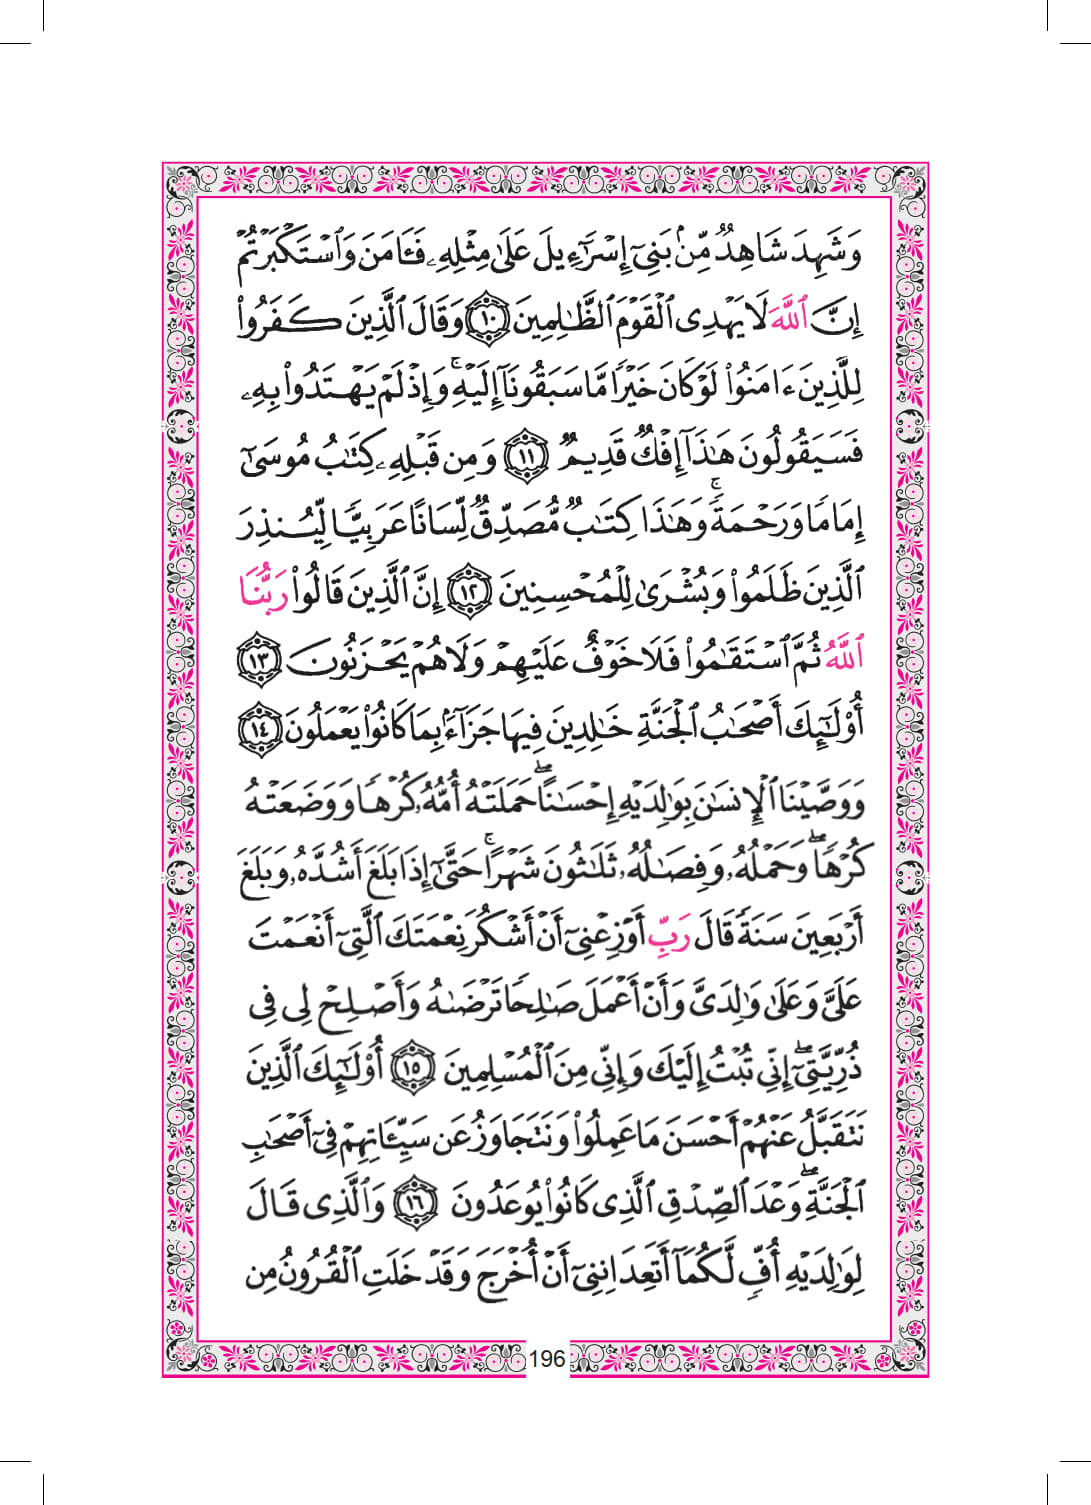 وَشَهِدَ شَاهِدٌ مِّنۢ بَنِىٓ إِسْرَٰٓءِيلَ عَلَىٰ مِثْلِهِۦ فَـَٔامَنَ وَٱسْتَكْبَرْتُمْ
إِنَّ ٱللَّهَ لَا يَهْدِى ٱلْقَوْمَ ٱلظَّٰلِمِينَ ١٠ وَقَالَ ٱلَّذِينَ كَفَرُوا۟
لِلَّذِينَ ءَامَنُوا۟ لَوْ كَانَ خَيْرًا مَّا سَبَقُونَآ إِلَيْهِ ۚ وَإِذْ لَمْ يَهْتَدُوا۟ بِهِۦ
فَسَيَقُولُونَ هَٰذَآ إِفْكٌ قَدِيمٌ ١١ وَمِن قَبْلِهِۦ كِتَٰبُ مُوسَىٰٓ
إِمَامًا وَرَحْمَةً ۚ وَهَٰذَا كِتَٰبٌ مُّصَدِّقٌ لِّسَانًا عَرَبِيًّا لِّيُنذِرَ
ٱلَّذِينَ ظَلَمُوا۟ وَبُشْرَىٰ لِلْمُحْسِنِينَ ١٢ إِنَّ ٱلَّذِينَ قَالُوا۟ رَبُّنَا
ٱللَّهُ ثُمَّ ٱسْتَقَٰمُوا۟ فَلَا خَوْفٌ عَلَيْهِمْ وَلَا هُمْ يَحْزَنُونَ ١٣
أُو۟لَٰٓئِكَ أَصْحَٰبُ ٱلْجَنَّةِ خَٰلِدِينَ فِيهَا جَزَآءًۢ بِمَا كَانُوا۟ يَعْمَلُونَ ١٤
وَوَصَّيْنَا ٱلْإِنسَٰنَ بِوَٰلِدَيْهِ إِحْسَٰنًا ۖ حَمَلَتْهُ أُمُّهُۥ كُرْهًا وَوَضَعَتْهُ
كُرْهًا ۖ وَحَمْلُهُۥ وَفِصَٰلُهُۥ ثَلَٰثُونَ شَهْرًا ۚ حَتَّىٰٓ إِذَا بَلَغَ أَشُدَّهُۥ وَبَلَغَ
أَرْبَعِينَ سَنَةً قَالَ رَبِّ أَوْزِعْنِىٓ أَنْ أَشْكُرَ نِعْمَتَكَ ٱلَّتِىٓ أَنْعَمْتَ
عَلَىَّ وَعَلَىٰ وَٰلِدَىَّ وَأَنْ أَعْمَلَ صَٰلِحًا تَرْضَىٰهُ وَأَصْلِحْ لِى فِى
ذُرِّيَّتِىٓ ۖ إِنِّى تُبْتُ إِلَيْكَ وَإِنِّى مِنَ ٱلْمُسْلِمِينَ ١٥ أُو۟لَٰٓئِكَ ٱلَّذِينَ
نَتَقَبَّلُ عَنْهُمْ أَحْسَنَ مَا عَمِلُوا۟ وَنَتَجَاوَزُ عَن سَيِّـَٔاتِهِمْ فِىٓ أَصْحَٰبِ
ٱلْجَنَّةِ ۖ وَعْدَ ٱلصِّدْقِ ٱلَّذِى كَانُوا۟ يُوعَدُونَ ١٦ وَٱلَّذِى قَالَ
لِوَٰلِدَيْهِ أُفٍّ لَّكُمَآ أَتَعِدَانِنِىٓ أَنْ أُخْرَجَ وَقَدْ خَلَتِ ٱلْقُرُونُ مِن
196